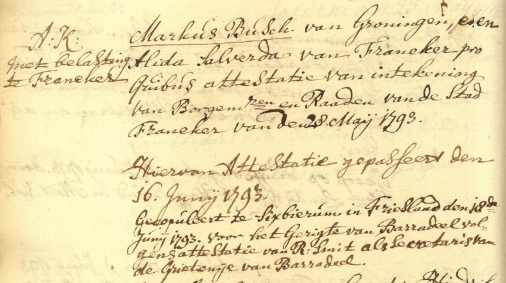 A:K:
met belasting
te Franeker
Markus Busch van Groningen, en
Alida Salverda van Franeker pro
Quibus attestatie van intekening
van Borgemren en Raaden van de Stad
Franeker van den 28 Maij 1793.
Hier van Attestatie gepasseert den
16. Junij 1793.
Gecopuleert te Sixbierum in Friesland den 18de
Junij 1793. voor het Gerigte van Barradeel vol-
gens attestatie van R. Smit als secretaris van
de Grietenije van Barradeel